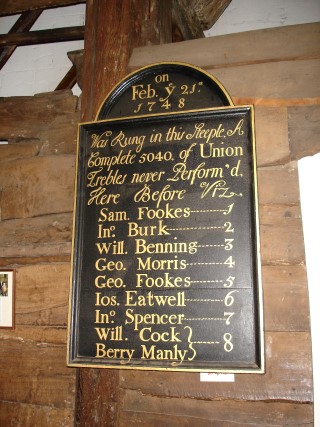 on
Feb. ÿ 21st
1748
Was Rung in this Steeple, A
Complete 5040. of Union
Trebles never Perform'd,
Here Before Viz.
Sam. Fookes 1
Ino. Burk 2
Will. Benning 3
Geo. Morris 4
Geo. Fookes 5
Ios. Eatwell 6
Ino. Spencer 7
Will. Cock } 8
Berry Manly